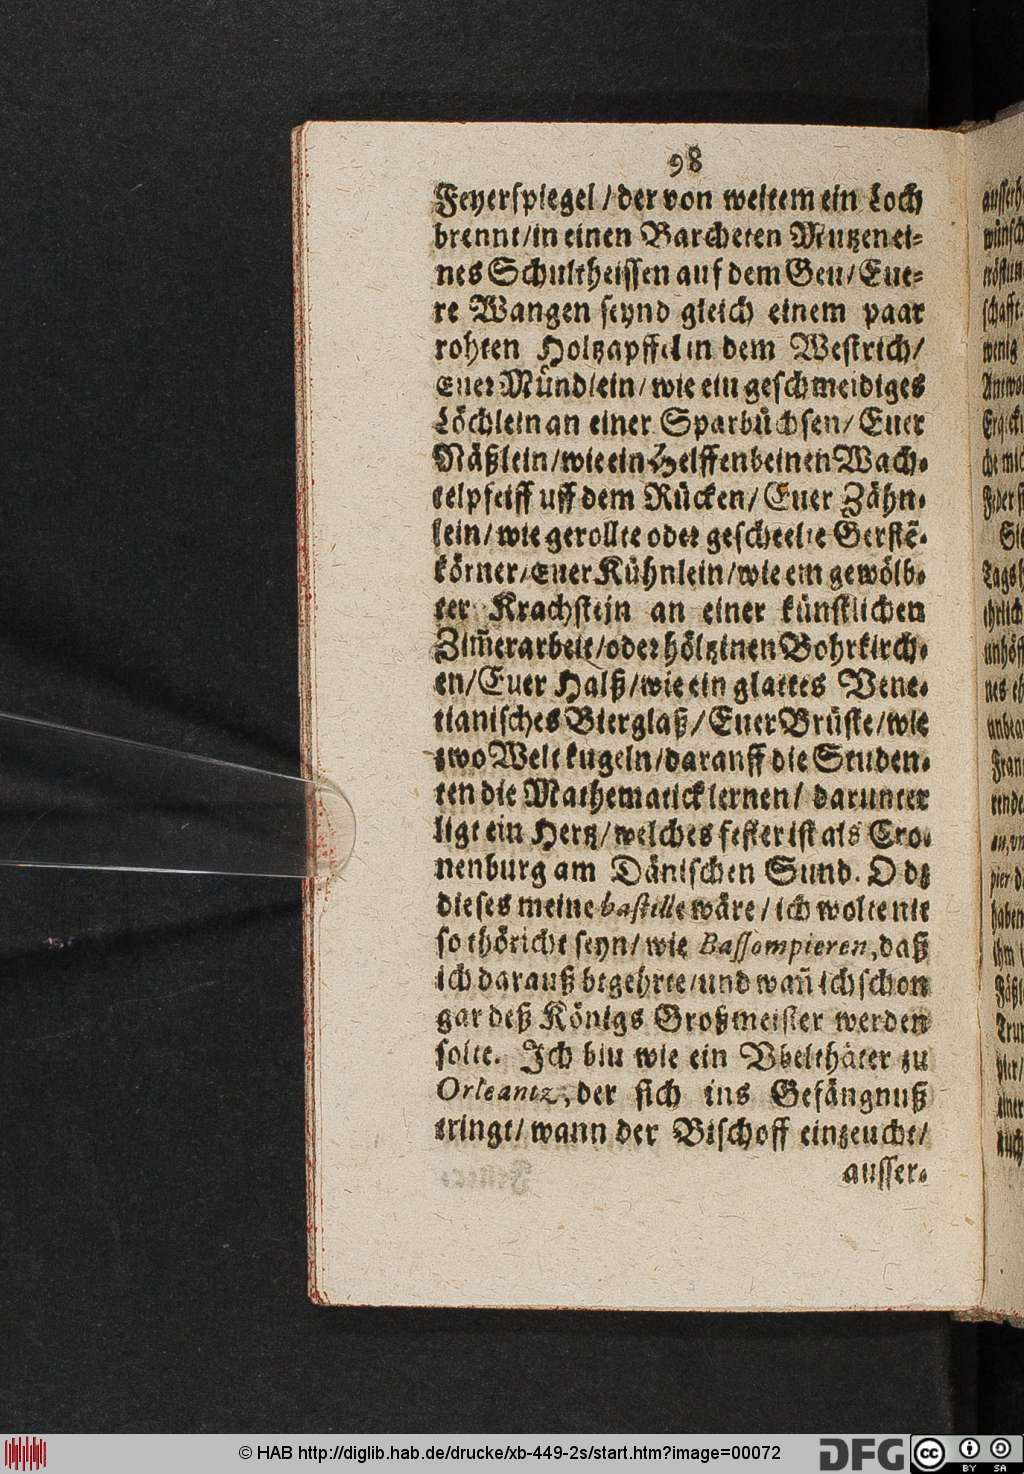 98
Feyerspiegel / der von weitem ein Loch
brennt / in einen Barcheten Mutzen ei-
nes Schultheissen auf dem Geu / Eue-
re Wangen seynd gleich einem paar
rohten Holtzapffel in dem Westrich /
Euer Mündlein / wie ein geschmeidiges
Löchlein an einer Sparbüchsen / Euer
Näßlein / wie ein Helffenbeinen Wach-
telpfeiff uff dem Rücken / Euer Zähn-
lein / wie gerollte oder gescheelte Gerstē-
körner / Euer Kühnlein / wie ein gewölb-
ter Krachstein an einer künstlichen
Zim̃erarbeit / oder höltzinen Bohrkirch-
en / Euer Halß / wie ein glattes Vene-
tianisches Bierglaß / Euer Brüste / wie
zwo Weltkugeln / darauff die Studen-
ten die Mathematick lernen / darunter
ligt ein Hertz / welches fester ist als Cro-
nenburg am Dänischen Sund. O dz
dieses meine bastille wäre / ich wolte nit
so thöricht seyn / wie Bassompieren, daß
ich darauß begehrte / und wañ ich schon
gar deß Königs Großmeister werden
solte. Ich bin wie ein Vbelthäter zu
Orleantz, der sich ins Gefängnuß
tringt / wann der Bischoff einzeucht /
ausser-
© HAB http://diglib.hab.de/drucke/xb-449-2s/start.htm?image=00072
DFG
cc
BY SA